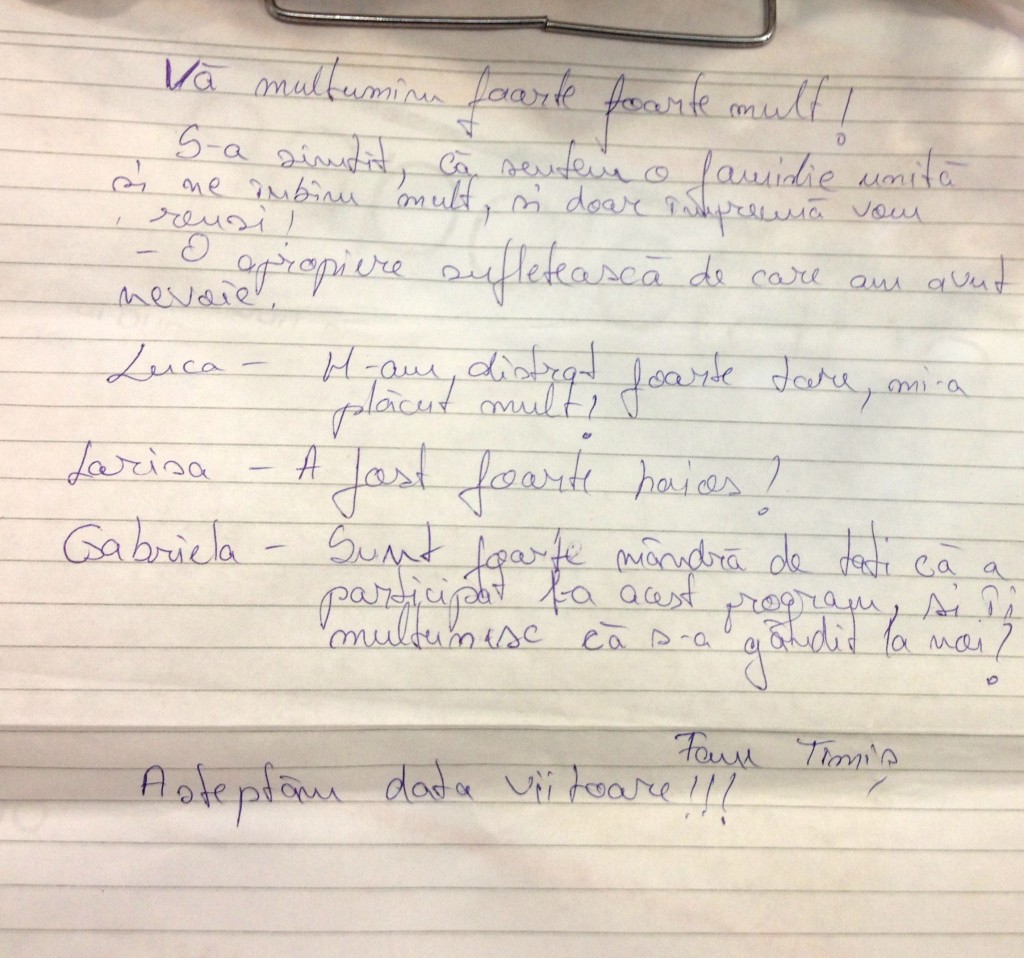 Vă multumim foarte foarte mult!
S-a simtit, că suntem o familie unită
si ne iubim mult, si doar împreună vom
reusi!
- O apropiere sufletească de care am avut
nevoie.
Luca - M-am distrat foarte tare, mi-a
plăcut mult!
Larisa - A fost foarte haios!
Gabriela - Sunt foarte mândră de tati că a
participat la acest program, si îi
multumesc că s-a gândit la noi!
Fam Timiș
Asteptăm data viitoare!!!